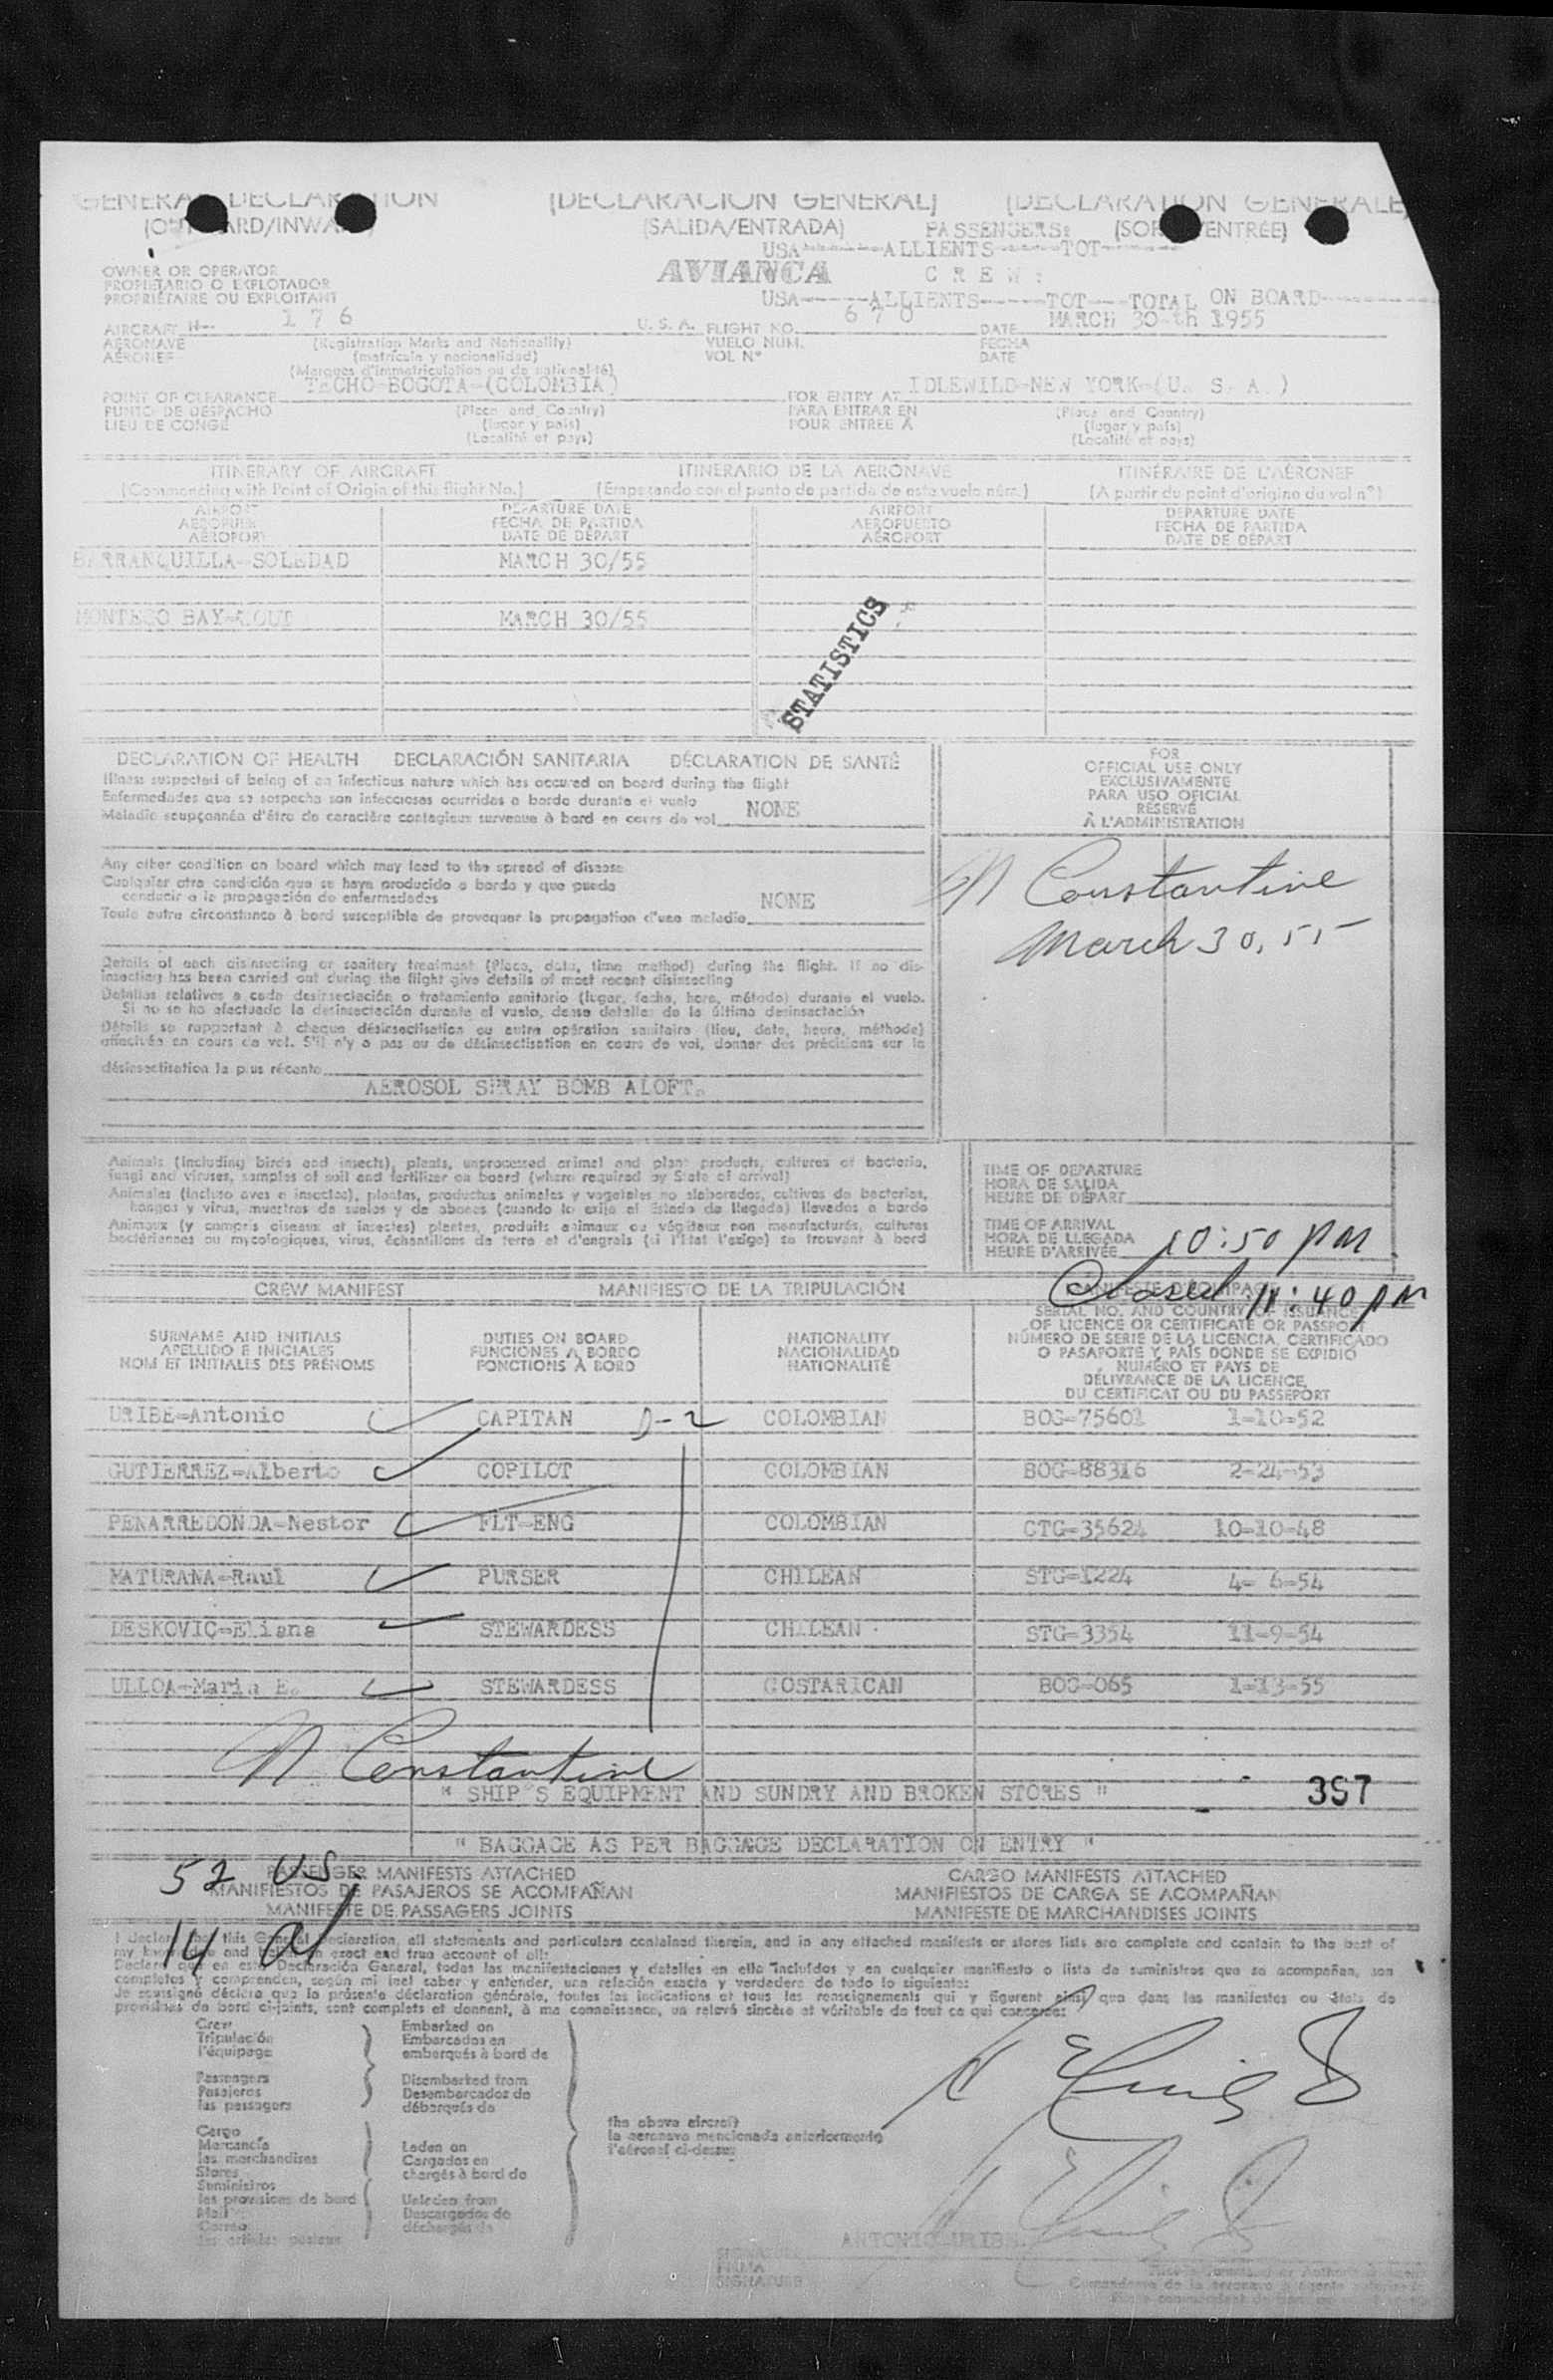 GENERAL DECLARATION (DECLARACION GENERAL) (DECLARATION GENERALE)
(OUTWARD/INWARD) (SALIDA/ENTRADA) PASSENGERS: (SORTIE/ENTRÉE)
USA ALLIENTS TOT
OWNER OR OPERATOR AVIANCA CREW:
PROPIETARIO O EXPLOTADOR
PROPRIÉTAIRE OU EXPLOITANT USA ALLIENTS TOT TOTAL ON BOARD
AIRCRAFT N- 176 U.S.A. FLIGHT NO. 670 DATE MARCH 30-th 1955
AERONAVE (Registration Marks and Nationality) VUELO NUM. FECHA
AÉRONEF (matrícula y nacionalidad) VOL Nº DATE
(Marques d'immatriculation ou de nationalité)
POINT OF CLEARANCE TECHO-BOGOTA-(COLOMBIA) FOR ENTRY AT IDLEWILD-NEW YORK-(U. S. A.)
PUNTO DE DESPACHO (Place and Country) PARA ENTRAR EN (Place and Country)
LIEU DE CONGÉ (lugar y país) POUR ENTREE A (lugar y país)
(Localité et pays) (Localité et pays)
ITINERARY OF AIRCRAFT ITINERARIO DE LA AERONAVE ITINÉRAIRE DE L'AÉRONEF
(Commencing with Point of Origin of this flight No.) (Empezando con el punto de partida de este vuelo núm.) (A partir du point d'origine du vol nº)
AIRPORT DEPARTURE DATE AIRPORT DEPARTURE DATE
AEROPUERTO FECHA DE PARTIDA AEROPUERTO FECHA DE PARTIDA
AÉROPORT DATE DE DÉPART AÉROPORT DATE DE DÉPART
BARRANQUILLA-SOLEDAD MARCH 30/55
MONTEGO BAY MARCH 30/55
STATISTICS
DECLARATION OF HEALTH DECLARACIÓN SANITARIA DÉCLARATION DE SANTÉ
FOR
OFFICIAL USE ONLY
EXCLUSIVAMENTE
PARA USO OFICIAL
RÉSERVÉ
À L'ADMINISTRATION
Illness suspected of being of an infectious nature which has occured on board during the flight
Enfermedades que se sospecha son infecciosas ocurridas a bordo durante el vuelo
Maladie soupçonnée d'être de caractère contagieux survenue à bord en cours de vol NONE
Any other condition on board which may lead to the spread of disease
Cualquier otra condición que se haya producido a bordo y que pueda
conducir a la propagación de enfermedades NONE
Toute autre circonstance à bord susceptible de provoquer la propagation d'une maladie
N Constantine
March 30, 55
Details of each disinsecting or sanitary treatment (Place, date, time method) during the flight. If no dis-
insecting has been carried out during the flight give details of most recent disinsecting
Detalles relativos a cada desinsectación o tratamiento sanitario (lugar, fecha, hora, método) durante el vuelo.
Si no se ha efectuado la desinsectación durante el vuelo, dense detalles de la última desinsectación
Détails se rapportant à chaque désinsectisation ou autre opération sanitaire (lieu, date, heure, méthode)
effectuée en cours de vol. S'il n'y a pas eu de désinsectisation en cours de vol, donner des précisions sur la
désinsectisation la plus récente
AEROSOL SPRAY BOMB ALOFT.
Animals (including birds and insects), plants, unprocessed animal and plant products, cultures of bacteria,
fungi and viruses, samples of soil and fertilizer on board (where required by State of arrival)
Animales (incluso aves e insectos), plantas, productos animales y vegetales no elaborados, cultivos de bacterias,
hongos y virus, muestras de suelos y de abonos (cuando lo exija el Estado de llegada) llevados a bordo
Animaux (y compris oiseaux et insectes) plantes, produits animaux ou végétaux non manufacturés, cultures
bactériennes ou mycologiques, virus, échantillons de terre et d'engrais (si l'Etat l'exige) se trouvant à bord
TIME OF DEPARTURE
HORA DE SALIDA
HEURE DE DÉPART
TIME OF ARRIVAL
HORA DE LLEGADA
HEURE D'ARRIVÉE 10:50 PM
Closed 11:40 PM
CREW MANIFEST MANIFIESTO DE LA TRIPULACIÓN MANIFESTE D'ÉQUIPAGE
SURNAME AND INITIALS DUTIES ON BOARD NATIONALITY
APELLIDO E INICIALES FUNCIONES A BORDO NACIONALIDAD
NOM ET INITIALES DES PRÉNOMS FONCTIONS À BORD NATIONALITÉ
SERIAL NO. AND COUNTRY OF ISSUANCE
OF LICENCE OR CERTIFICATE OR PASSPORT
NÚMERO DE SERIE DE LA LICENCIA, CERTIFICADO
O PASAPORTE Y PAÍS DONDE SE EXPIDIÓ
NUMÉRO ET PAYS DE
DÉLIVRANCE DE LA LICENCE,
DU CERTIFICAT OU DU PASSEPORT
URIBE-Antonio CAPITAN D-2 COLOMBIAN BOG-75601 1-10-52
GUTIERREZ-Alberto COPILOT COLOMBIAN BOG-88316 2-24-53
PENARREDONDA-Nestor FLT-ENG COLOMBIAN CTG-35624 10-10-48
MATURANA-Raul PURSER CHILEAN STG-1224 4- 6-54
DESKOVIC-Eliana STEWARDESS CHILEAN STG-3354 11-9-54
ULLOA-Maria E. STEWARDESS COSTARICAN BOG-065 1-13-55
N Constantine
" SHIP'S EQUIPMENT AND SUNDRY AND BROKEN STORES " 357
" BAGGAGE AS PER BAGGAGE DECLARATION ON ENTRY "
52 US
PASSENGER MANIFESTS ATTACHED CARGO MANIFESTS ATTACHED
MANIFIESTOS DE PASAJEROS SE ACOMPAÑAN MANIFIESTOS DE CARGA SE ACOMPAÑAN
MANIFESTE DE PASSAGERS JOINTS MANIFESTE DE MARCHANDISES JOINTS
14 al
I declare that this General Declaration, all statements and particulars contained therein, and in any attached manifests or stores lists are complete and contain to the best of
my knowledge and belief an exact and true account of all:
Declaro que en esta Declaración General, todas las manifestaciones y detalles en ella incluídos y en cualquier manifiesto o lista de suministros que se acompañan, son
completos y comprenden, según mi leal saber y entender, una relación exacta y verdadera de todo lo siguiente:
Je soussigné déclare que la présente déclaration générale, toutes les indications et tous les renseignements qui y figurent ainsi que dans les manifestes ou états de
provisions de bord ci-joints, sont complets et donnent, à ma connaissance, un relevé sincère et véritable de tout ce qui concerne:
Crew Embarked on
Tripulación Embarcados en
l'équipage embarqués à bord de
Passengers Disembarked from
Pasajeros Desembarcados de
les passagers débarqués de
the above aircraft
la aeronave mencionada anteriormente
l'aéronef ci-dessus
Cargo
Mercancía Laden on
les marchandises Cargados en
Stores chargés à bord de
Suministros
les provisions de bord Unladen from
Mail Descargados de
Correo déchargés de
les articles postaux
ANTONIO URIBE
SIGNATURE
FIRMA
SIGNATURE